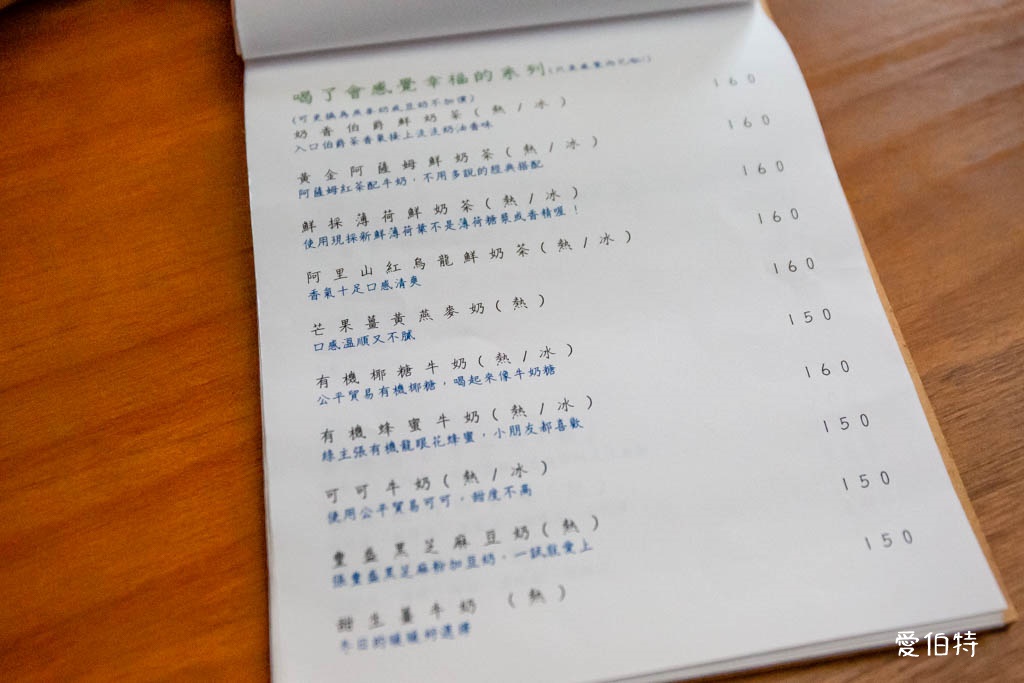 喝了會感覺幸福的系列
(可更換為燕麥奶或豆奶不加價)
奶香伯爵鮮奶茶(熱/冰) 160
入口伯爵茶香氣接上淡淡奶油香味
黃金阿薩姆鮮奶茶(熱/冰) 160
阿薩姆紅茶配牛奶,不用多說的經典搭配
鮮採薄荷鮮奶茶(熱/冰) 160
使用現採新鮮薄荷葉不是薄荷糖漿或香精喔!
阿里山紅烏龍鮮奶茶(熱/冰) 160
香氣十足口感清爽
芒果薑黃燕麥奶(熱) 160
口感溫順又不膩
有機椰糖牛奶(熱/冰) 150
公平貿易有機椰糖,喝起來像牛奶糖
有機蜂蜜牛奶(熱/冰) 160
綠主張有機龍眼花蜂蜜,小朋友都喜歡
可可牛奶(熱/冰) 150
使用公平貿易可可,甜度不高
豐盛黑芝麻豆奶(熱) 150
張豐盛黑芝麻粉加豆奶,一試就愛上
甜生薑牛奶 (熱) 150
冬日的暖暖的選擇
愛伯特